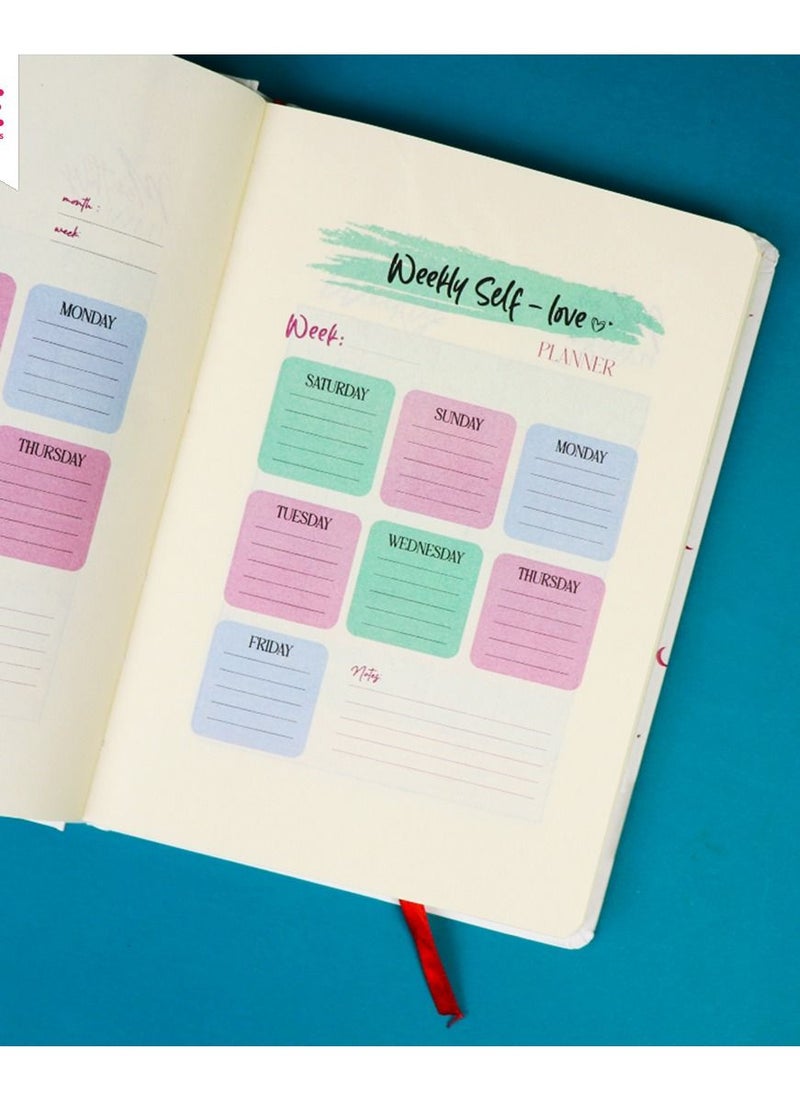 month :
week:
MONDAY
THURSDAY
Weekly Self - love
PLANNER
Week:
SATURDAY
SUNDAY
MONDAY
TUESDAY
WEDNESDAY
THURSDAY
FRIDAY
Notes